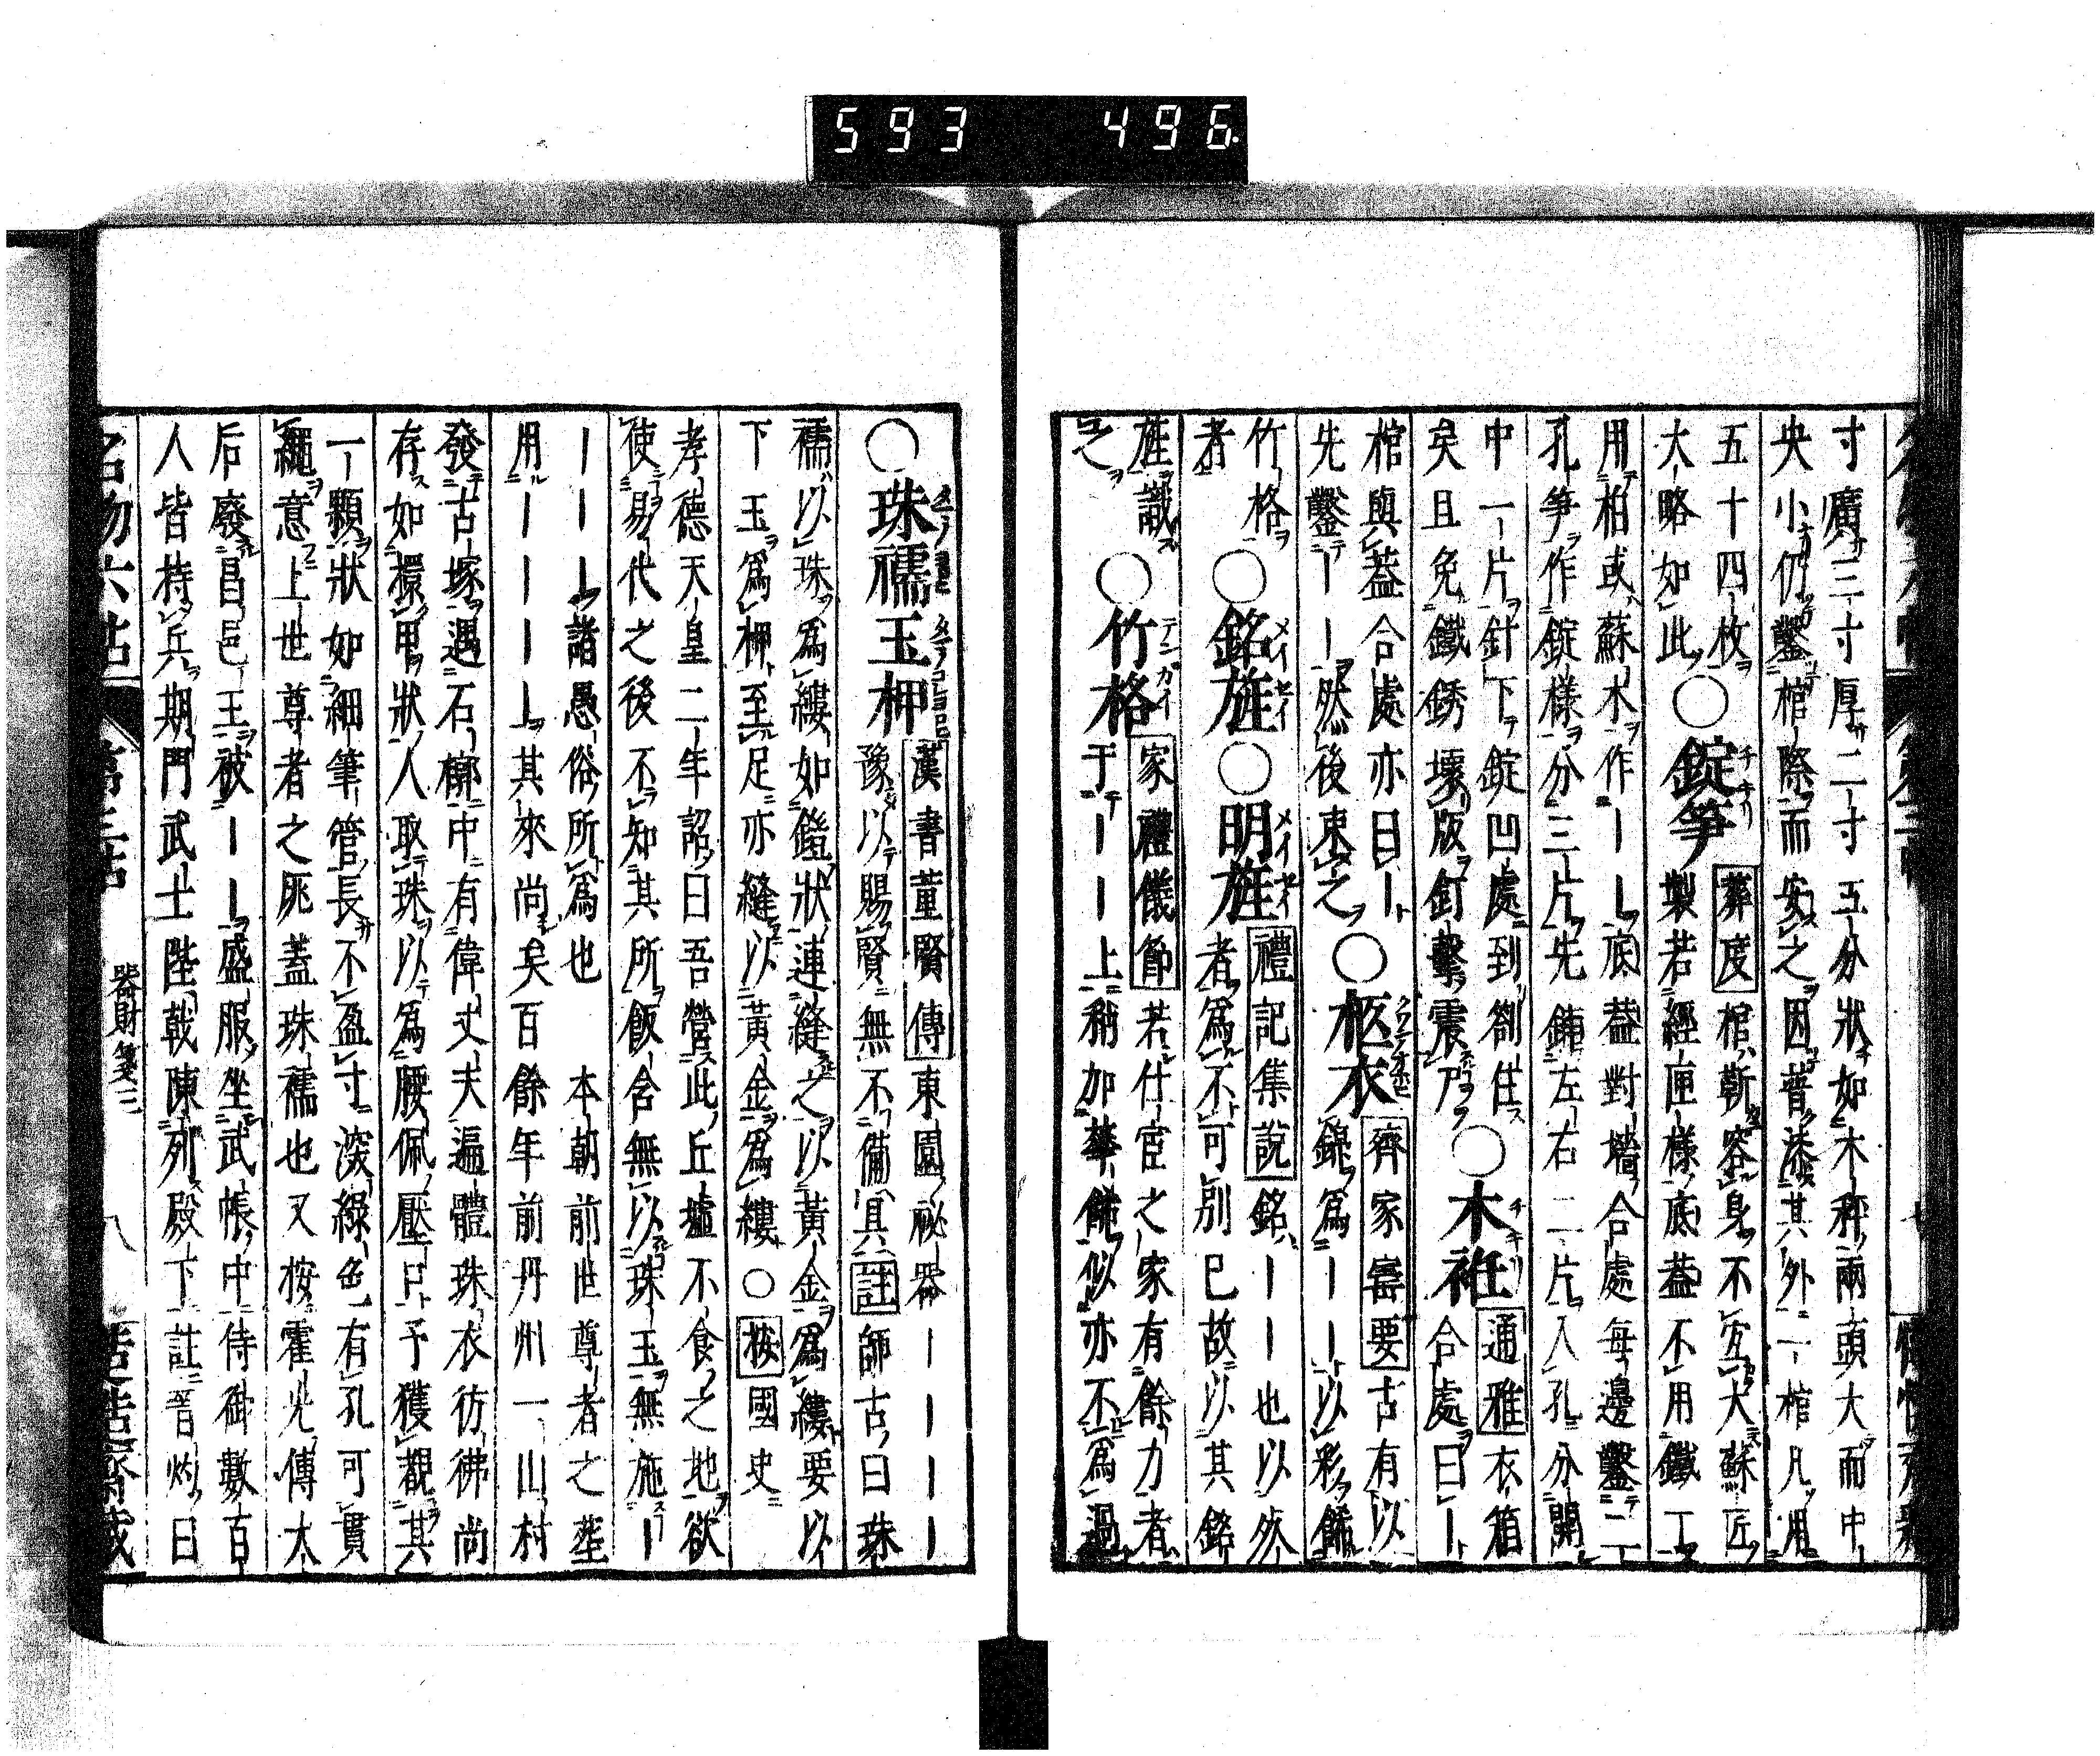 593 496.
寸廣三寸厚二寸五分狀如木秤兩頭大而中
央小仍鑿棺際而安之因普漆其外一棺凡用
五十四枚
大略如此○錠笋 葬度 棺斬容身不宜大蘇匠
製若經匣樣底蓋不用鐵丁
用柏或蘇木作――底蓋對墻合處每邊鑿二
孔笋作錠樣分三片先鋪左右二片入孔分開
中一片針下錠凹處到劄住
矣且免鐵銹壞版釘擊震尸○木袵 通雅 衣箱
合處曰―
棺與蓋合處亦曰―
先鑿―――然後束之○柩衣 齊家寶要 古有以
錦爲――以彩餙
竹格○銘旌○明旌 禮記集說 銘――也以然
者者爲不可別已故以其銘
旌識○竹格 家禮儀節 若仕宦之家有餘力者
之 于――上稍加華餙似亦不爲過
○珠襦玉柙 漢書董賢傳 東園祕器――――
豫以賜賢無不備具 註 師古曰珠
襦以珠爲縷如鎧狀連縫之以黃金爲縷要以
下玉爲柙至足亦縫以黃金爲縷○ 按 國史
孝德天皇二年詔曰吾營此丘墟不食之地欲
使易代之後不知其所飯含無以珠玉無施―
―――諸愚俗所爲也 本朝前世尊者之葬
用――――其來尚矣百餘年前丹州一山村
發古塚遇石槨中有偉丈夫遍體珠衣彷彿尚
存如擐甲狀人取珠以爲腰佩壓口予獲覩其
一顆狀如細筆管長不盈寸深綠色有孔可貫
繩意上世尊者之匛蓋珠襦也又按霍光傳太
后廢昌邑王被――盛服坐武帳中侍御數百
人皆持兵期門武士陛戟陳列殿下註晋灼曰
名物六帖 第三帖 器財箋三 八